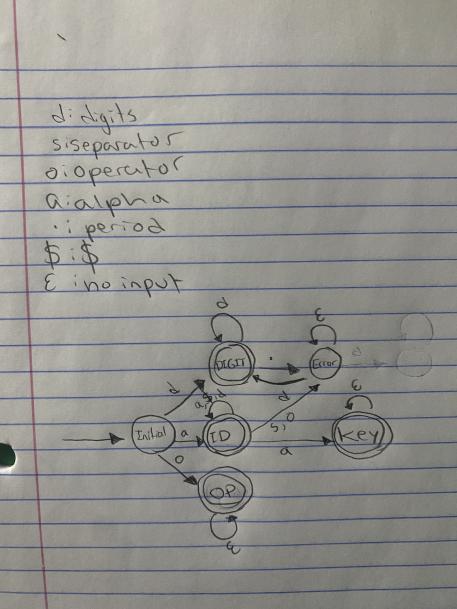 d: digits
s: separator
o: operator
a: alpha
. : period
$ : $
ε : no input
d
ε
DIGIT
.
Error
d
d
Initial
a
ID
s, o
Key
ε
a
o
OP
ε